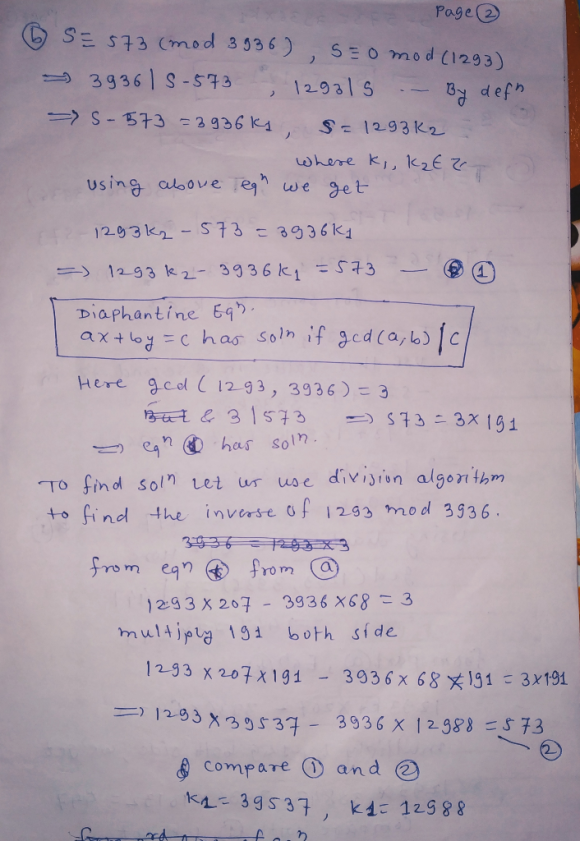 Page ②
ⓑ S ≡ 573 (mod 3936) , S ≡ 0 mod (1293)
⟹ 3936 | S-573 , 1293 | S --- By defⁿ
⟹ S - 573 = 3936K1 , S = 1293K2
where K1, K2 ∈ ℤ
using above eqⁿ we get
1293K2 - 573 = 3936K1
⟹ 1293 K2 - 3936K1 = 573 — ①
Diaphantine Eqⁿ.
ax+by = c has solⁿ if gcd(a,b) | c
Here gcd (1293, 3936) = 3
& 3 | 573 ⟹ 573 = 3×191
⟹ eqⁿ ① has solⁿ.
To find solⁿ Let us use division algorithm
to find the inverse of 1293 mod 3936.
3936 = 1293 × 3
from eqⁿ from ⓐ
1293 × 207 - 3936 × 68 = 3
multiply 191 both side
1293 × 207 × 191 - 3936 × 68 × 191 = 3×191
⟹ 1293 × 39537 - 3936 × 12988 = 573
②
compare ① and ②
K1 = 39537 , K1 = 12988